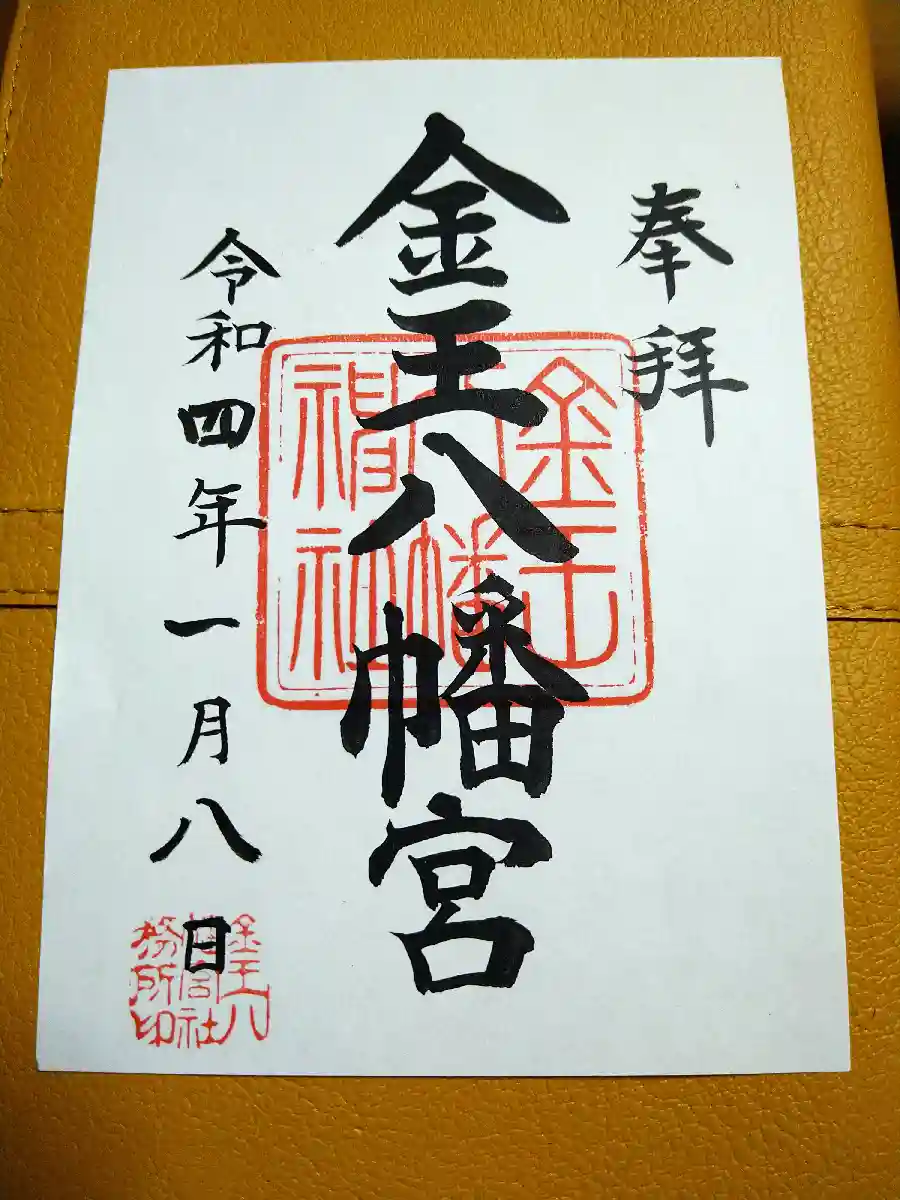 奉拝
金王八幡宮
令和四年一月八日
金王
八幡
神社
金王八
幡宮社
務所印